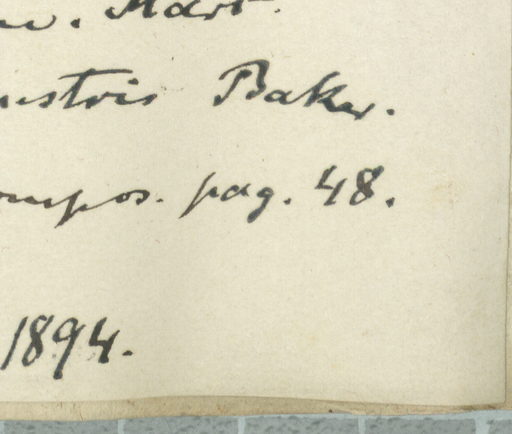 Mart.
ustris Baker.
ompos. pag. 48.
1894.